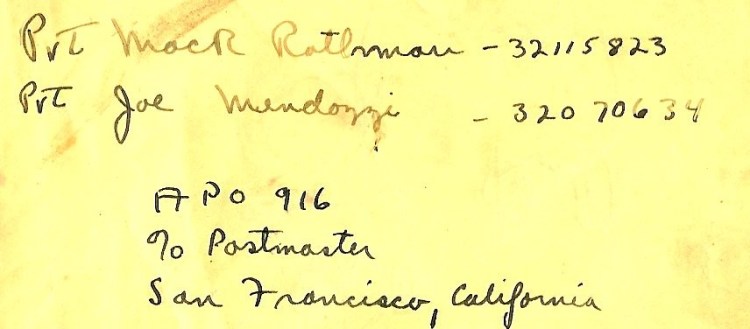 Pvt Mack Rothman - 32115823
Pvt Joe Mendozzi - 32070634
APO 916
c/o Postmaster
San Francisco, California